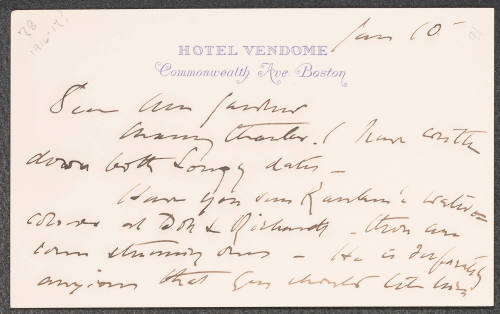 78
1916-17?
91
HOTEL VENDOME
Commonwealth Ave Boston
Jan 10
Dear Mrs Gardner
Many thanks. I have written
down both Longy dates –
Have you seen water-
colors at Doll & Richards – there are
some stunning ones – He is desperately
anxious that you should like him